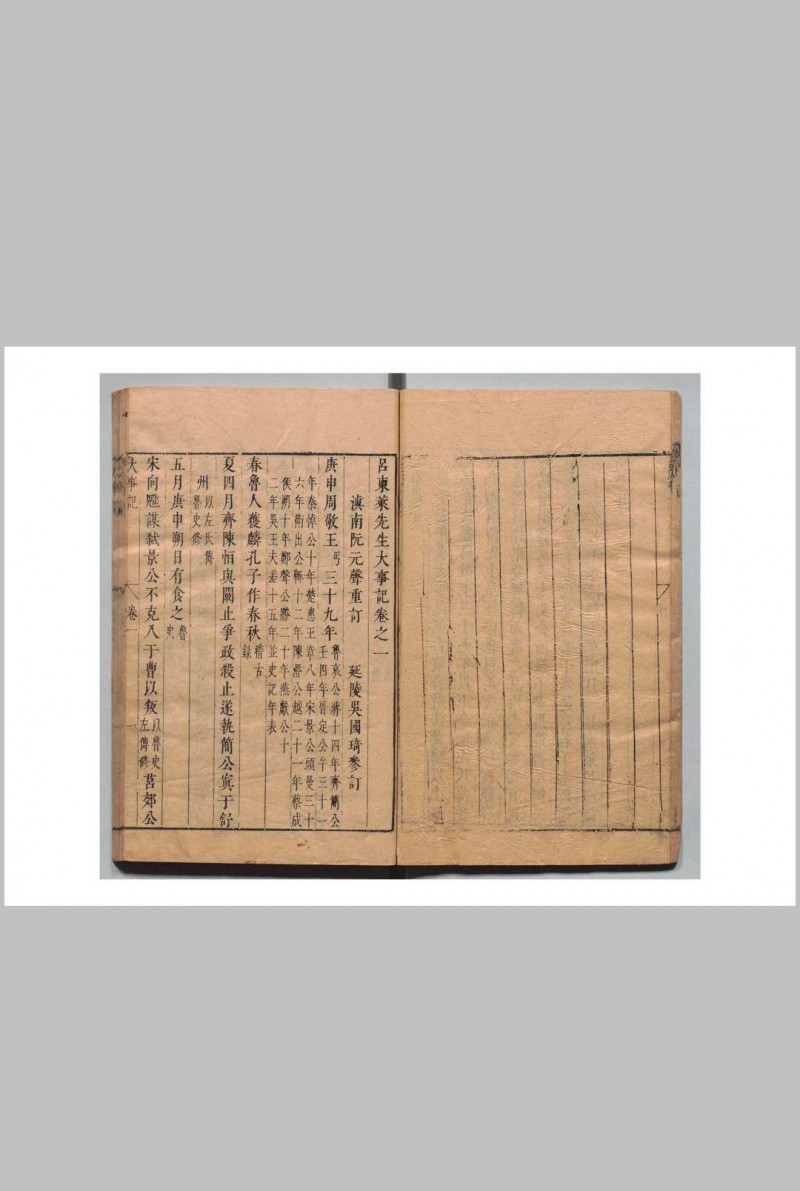 呂東萊先生大事記卷之一
滇南阮元聲重訂 延陵吳國琦參訂
庚申周敬王丐三十九年魯哀公蔣十四年齊簡公壬四年晉定公午三十一
年秦悼公十年楚惠王章八年宋景公頭曼三十六年衛出公輒十二年陳湣公越二十一年蔡成
侯朔十年鄭聲公勝二十年燕獻公十二年吳王夫差十五年並史記年表
春魯人獲麟孔子作春秋稽古錄
夏四月齊陳恒與闞止爭政殺止遂執簡公寘于舒
州以左氏傳魯史修
五月庚申朔日有食之魯史
宋向魋謀弒景公不克入于曹以叛以魯史左傳修莒郊公
大事記 卷一 一